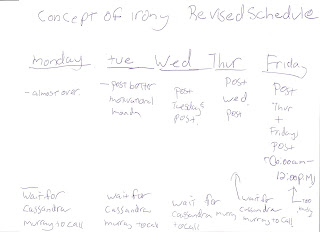 Concept of irony Revised Schedule
Monday tue Wed Thur Friday
- almost over
- post better
motivational
monda
Post
Tuesdays
post.
Post
wed.
post
Post
Thur
+
Fridays
post
12:00p.m.
too
Wait for
Cassandra
murray to call
wait for
Cassandra
murray to call
wait for
Cassandra murray
to call
wait for
cassandra
murray to call